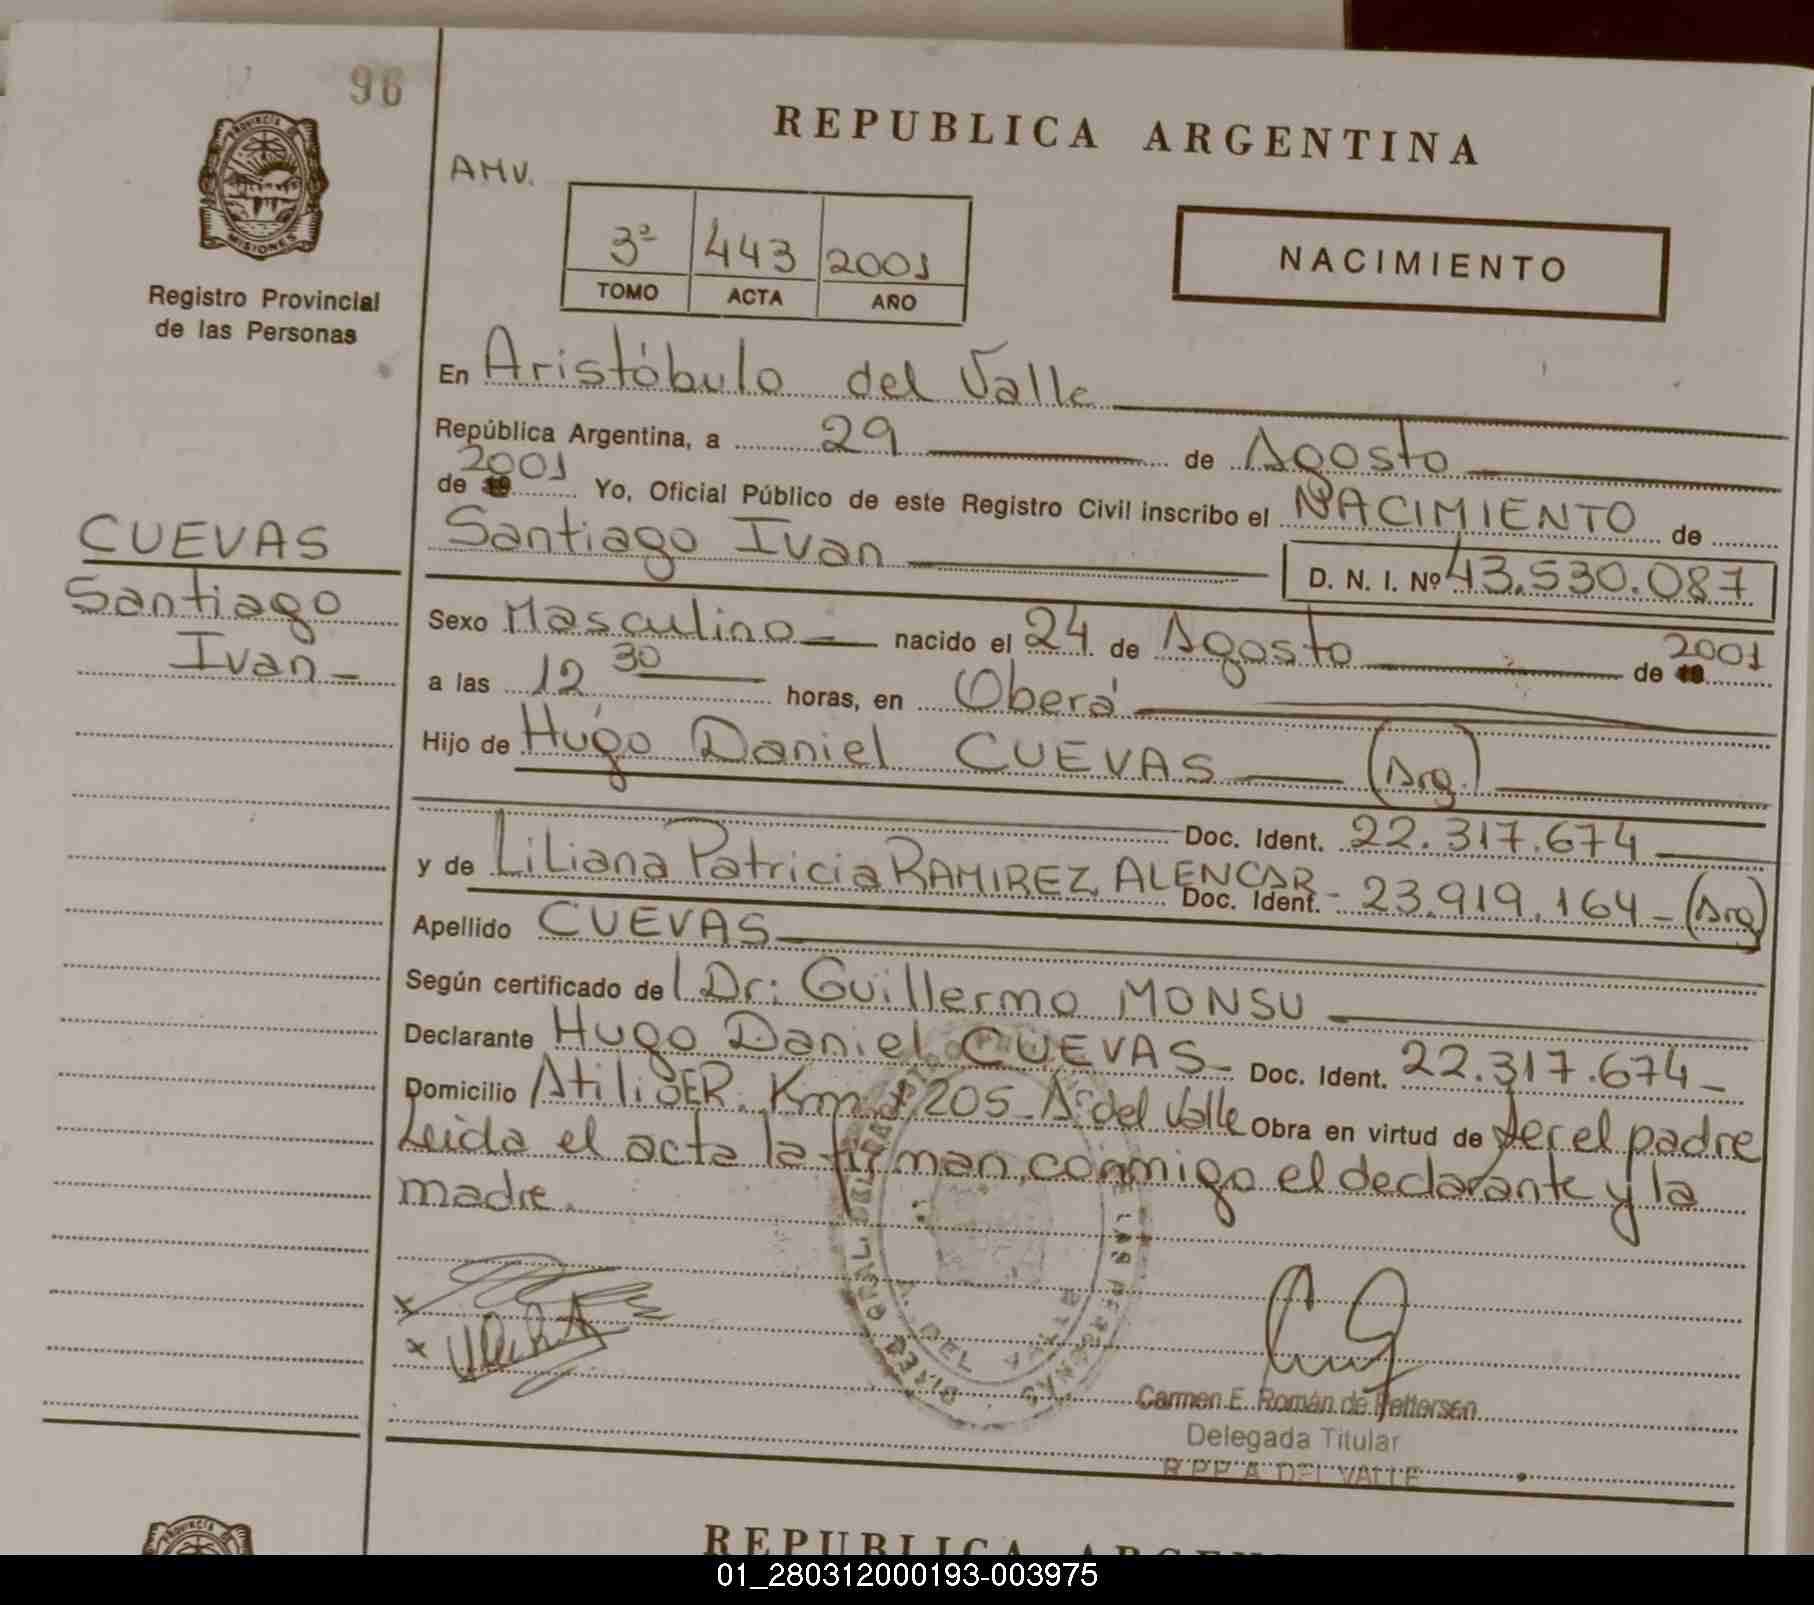 96
PROVINCIA DE
MISIONES
Registro Provincial
de las Personas
CUEVAS
Santiago
Ivan
REPUBLICA ARGENTINA
AMV.
3º 443 2001
TOMO ACTA AÑO
NACIMIENTO
En Aristóbulo del Valle
República Argentina, a 29 de Agosto
de 2001 Yo, Oficial Público de este Registro Civil inscribo el NACIMIENTO de
Santiago Ivan D. N. I. Nº 43.530.087
Sexo Masculino nacido el 24 de Agosto de 2001
a las 12 30 horas, en Oberá
Hijo de Hugo Daniel CUEVAS (Arg.)
Doc. Ident. 22.317.674
y de Liliana Patricia RAMIREZ ALENCAR Doc. Ident. 23.919.164 (Arg)
Apellido CUEVAS
Según certificado del Dr: Guillermo MONSU
Declarante Hugo Daniel CUEVAS Doc. Ident. 22.317.674
Domicilio Km 205 A. del Valle Obra en virtud de ser el padre
Leida el acta la firman conmigo el declarante y la
madre.
Carmen E. Román de Pettersen
Delegada Titular
R.P.P. A. DEL VALLE
REPUBLICA
01_280312000193-003975